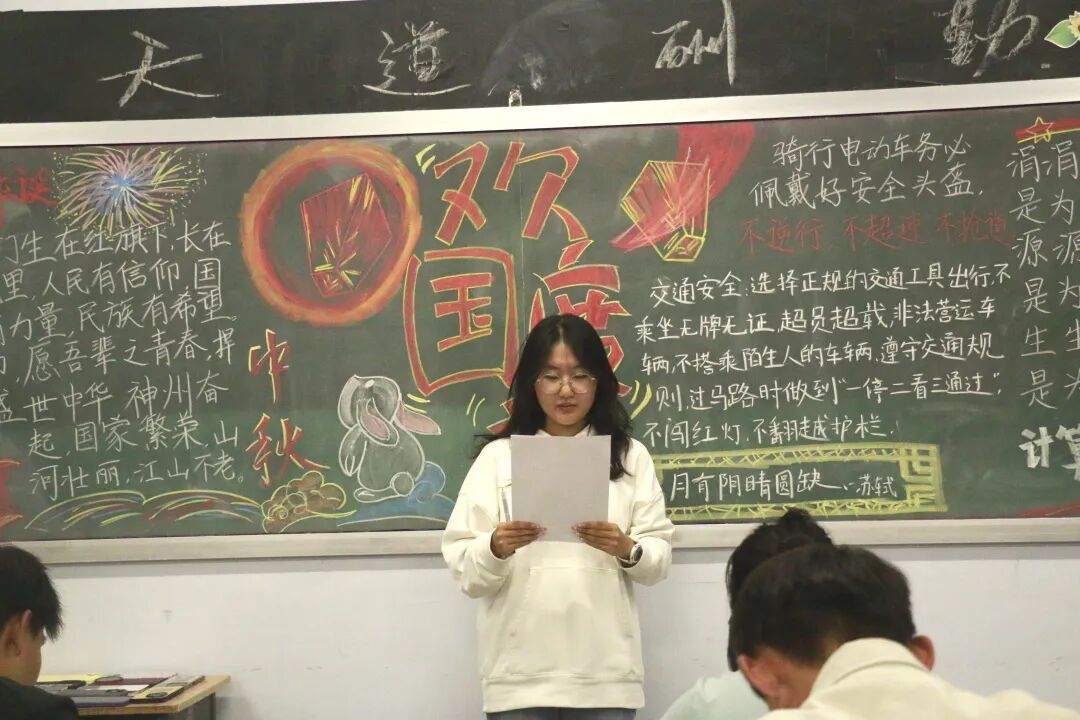 天道酬勤
们生在红旗下,长在
里,人民有信仰,国
力量,民族有希望。
愿吾辈之青春,捍
盛世中华,神州奋
起,国家繁荣,山
河壮丽,江山不老。
中秋
欢度
国
骑行电动车务必
佩戴好安全头盔,
不逆行,不超速,不抢道
交通安全:选择正规的交通工具出行,不
乘坐无牌无证,超员超载,非法营运车
辆,不搭乘陌生人的车辆,遵守交通规
则,过马路时做到“一停二看三通过”
不闯红灯,不翻越护栏,
月有阴晴圆缺……苏轼
涓涓
是为
源源
是为
生生
是为
计算